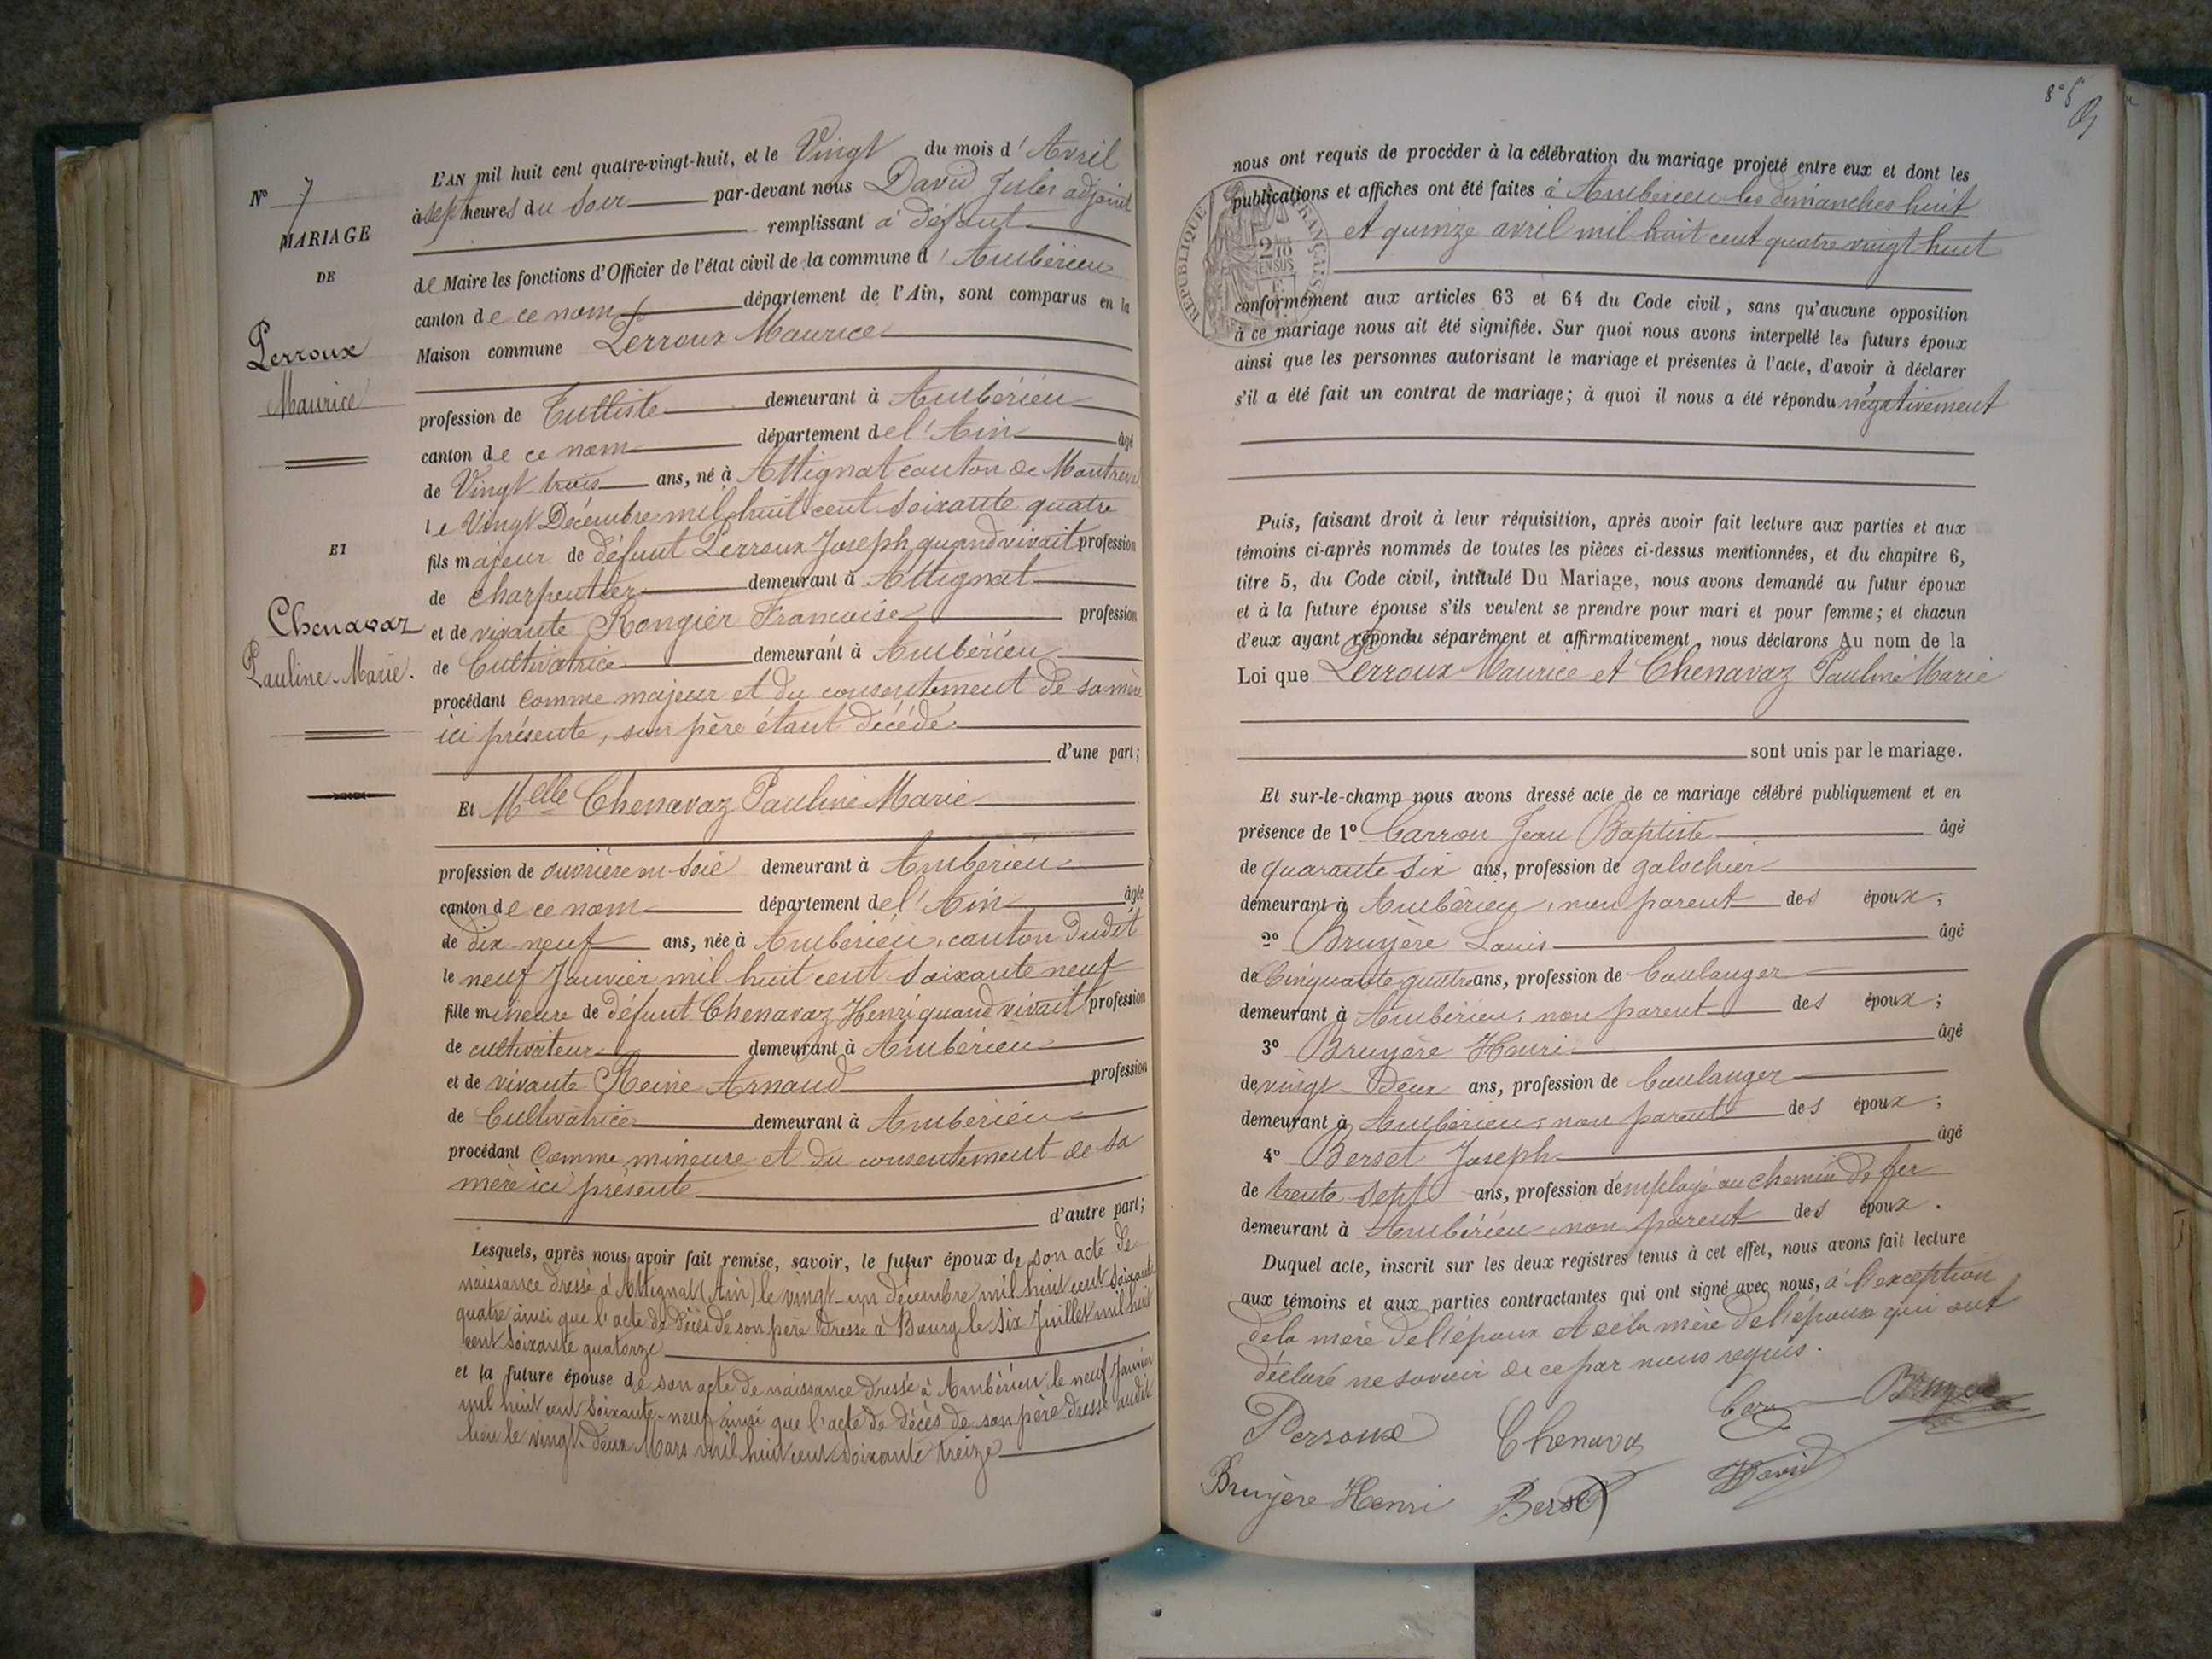 N° 7
MARIAGE
DE
Perroux
Maurice
ET
Chenavaz
Pauline-Marie.
L'AN mil huit cent quatre-vingt-huit, et le Vingt du mois d'Avril
à sept heures du soir par-devant nous David Jules adjoint
remplissant à défaut
de Maire les fonctions d'Officier de l'état civil de la commune d'Ambérieu
canton de ce nom département de l'Ain, sont comparus en la
Maison commune Perroux Maurice
profession de Tulliste demeurant à Ambérieu
canton de ce nom département de l'Ain âgé
de Vingt trois ans, né à Attignat canton de Montrevel
le Vingt Décembre mil huit cent soixante quatre
fils majeur de défunt Perroux Joseph quand vivait profession
de charpentier demeurant à Attignat
et de vivante Rongier Francoise profession
de Cultivatrice demeurant à Ambérieu
procédant comme majeur et du consentement de sa mère
ici présente, son père étant décédé
d'une part;
Et Melle Chenavaz Pauline Marie
profession de ouvrière en soie demeurant à Ambérieu
canton de ce nom département de l'Ain âgée
de dix-neuf ans, née à Ambérieu, canton dudit
le neuf Janvier mil huit cent soixante neuf
fille mineure de défunt Chenavaz Henri quand vivait profession
de cultivateur demeurant à Ambérieu
et de vivante Reine Arnaud profession
de Cultivatrice demeurant à Ambérieu
procédant comme mineure et du consentement de sa
mère ici présente
d'autre part;
Lesquels, après nous avoir fait remise, savoir, le futur époux de son acte de
naissance dressé à Attignat (Ain) le vingt-un décembre mil huit cent soixante
quatre ainsi que l'acte de décès de son père dressé à Bourg le six Juillet mil huit
cent soixante quatorze
et la future épouse de son acte de naissance dressé à Ambérieu le neuf Janvier
mil huit cent soixante-neuf ainsi que l'acte de décès de son père dressé audit
lieu le vingt-deux Mars mil huit cent soixante treize
nous ont requis de procéder à la célébration du mariage projeté entre eux et dont les
publications et affiches ont été faites à Ambérieu les dimanches huit
et quinze avril mil huit cent quatre vingt huit
conformément aux articles 63 et 64 du Code civil, sans qu'aucune opposition
à ce mariage nous ait été signifiée. Sur quoi nous avons interpellé les futurs époux
ainsi que les personnes autorisant le mariage et présentes à l'acte, d'avoir à déclarer
s'il a été fait un contrat de mariage; à quoi il nous a été répondu négativement
Puis, faisant droit à leur réquisition, après avoir fait lecture aux parties et aux
témoins ci-après nommés de toutes les pièces ci-dessus mentionnées, et du chapitre 6,
titre 5, du Code civil, intitulé Du Mariage, nous avons demandé au futur époux
et à la future épouse s'ils veulent se prendre pour mari et pour femme; et chacun
d'eux ayant répondu séparément et affirmativement, nous déclarons Au nom de la
Loi que Perroux Maurice et Chenavaz Pauline Marie
sont unis par le mariage.
Et sur-le-champ nous avons dressé acte de ce mariage célébré publiquement et en
présence de 1° Carron Jean Baptiste âgé
de quarante six ans, profession de galochier
demeurant à Ambérieu, non parent des époux;
2° Bruyère Louis âgé
de Cinquante quatre ans, profession de boulanger
demeurant à Ambérieu, non parent des époux;
3° Bruyère Henri âgé
de vingt-deux ans, profession de boulanger
demeurant à Ambérieu, non parent des époux;
4° Berset Joseph âgé
de trente sept ans, profession d'employé au chemin de fer
demeurant à Ambérieu, non parent des époux.
Duquel acte, inscrit sur les deux registres tenus à cet effet, nous avons fait lecture
aux témoins et aux parties contractantes qui ont signé avec nous, à l'exception
de la mère de l'époux et de la mère de l'épouse qui ont
déclaré ne savoir de ce par nous requis.
Perroux Chenavaz Bruyère
Bruyère Henri Berset David